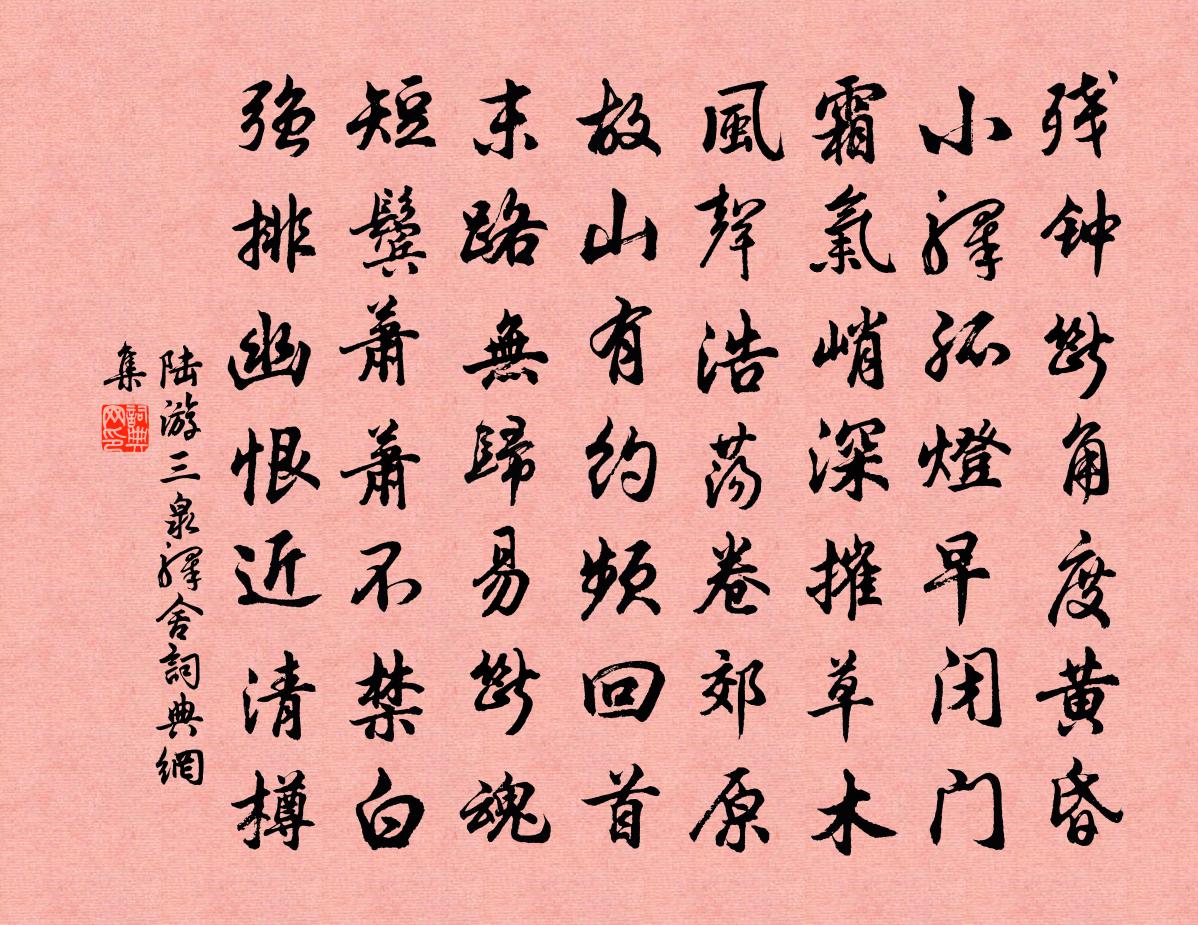 残钟断角度黄昏
小驿孤燈早闭门
霜氣峭深摧草木
風聲浩荡卷郊原
故山有约频回首
末路無歸易断魂
短鬓萧萧不禁白
強排幽恨近清樽
陆游三泉驿舍詞典網
集
詞典
网印